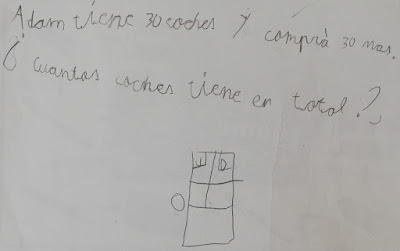 Adam tiene 30 coches y compra 30 mas.
¿ cuantos coches tiene en total?
U D